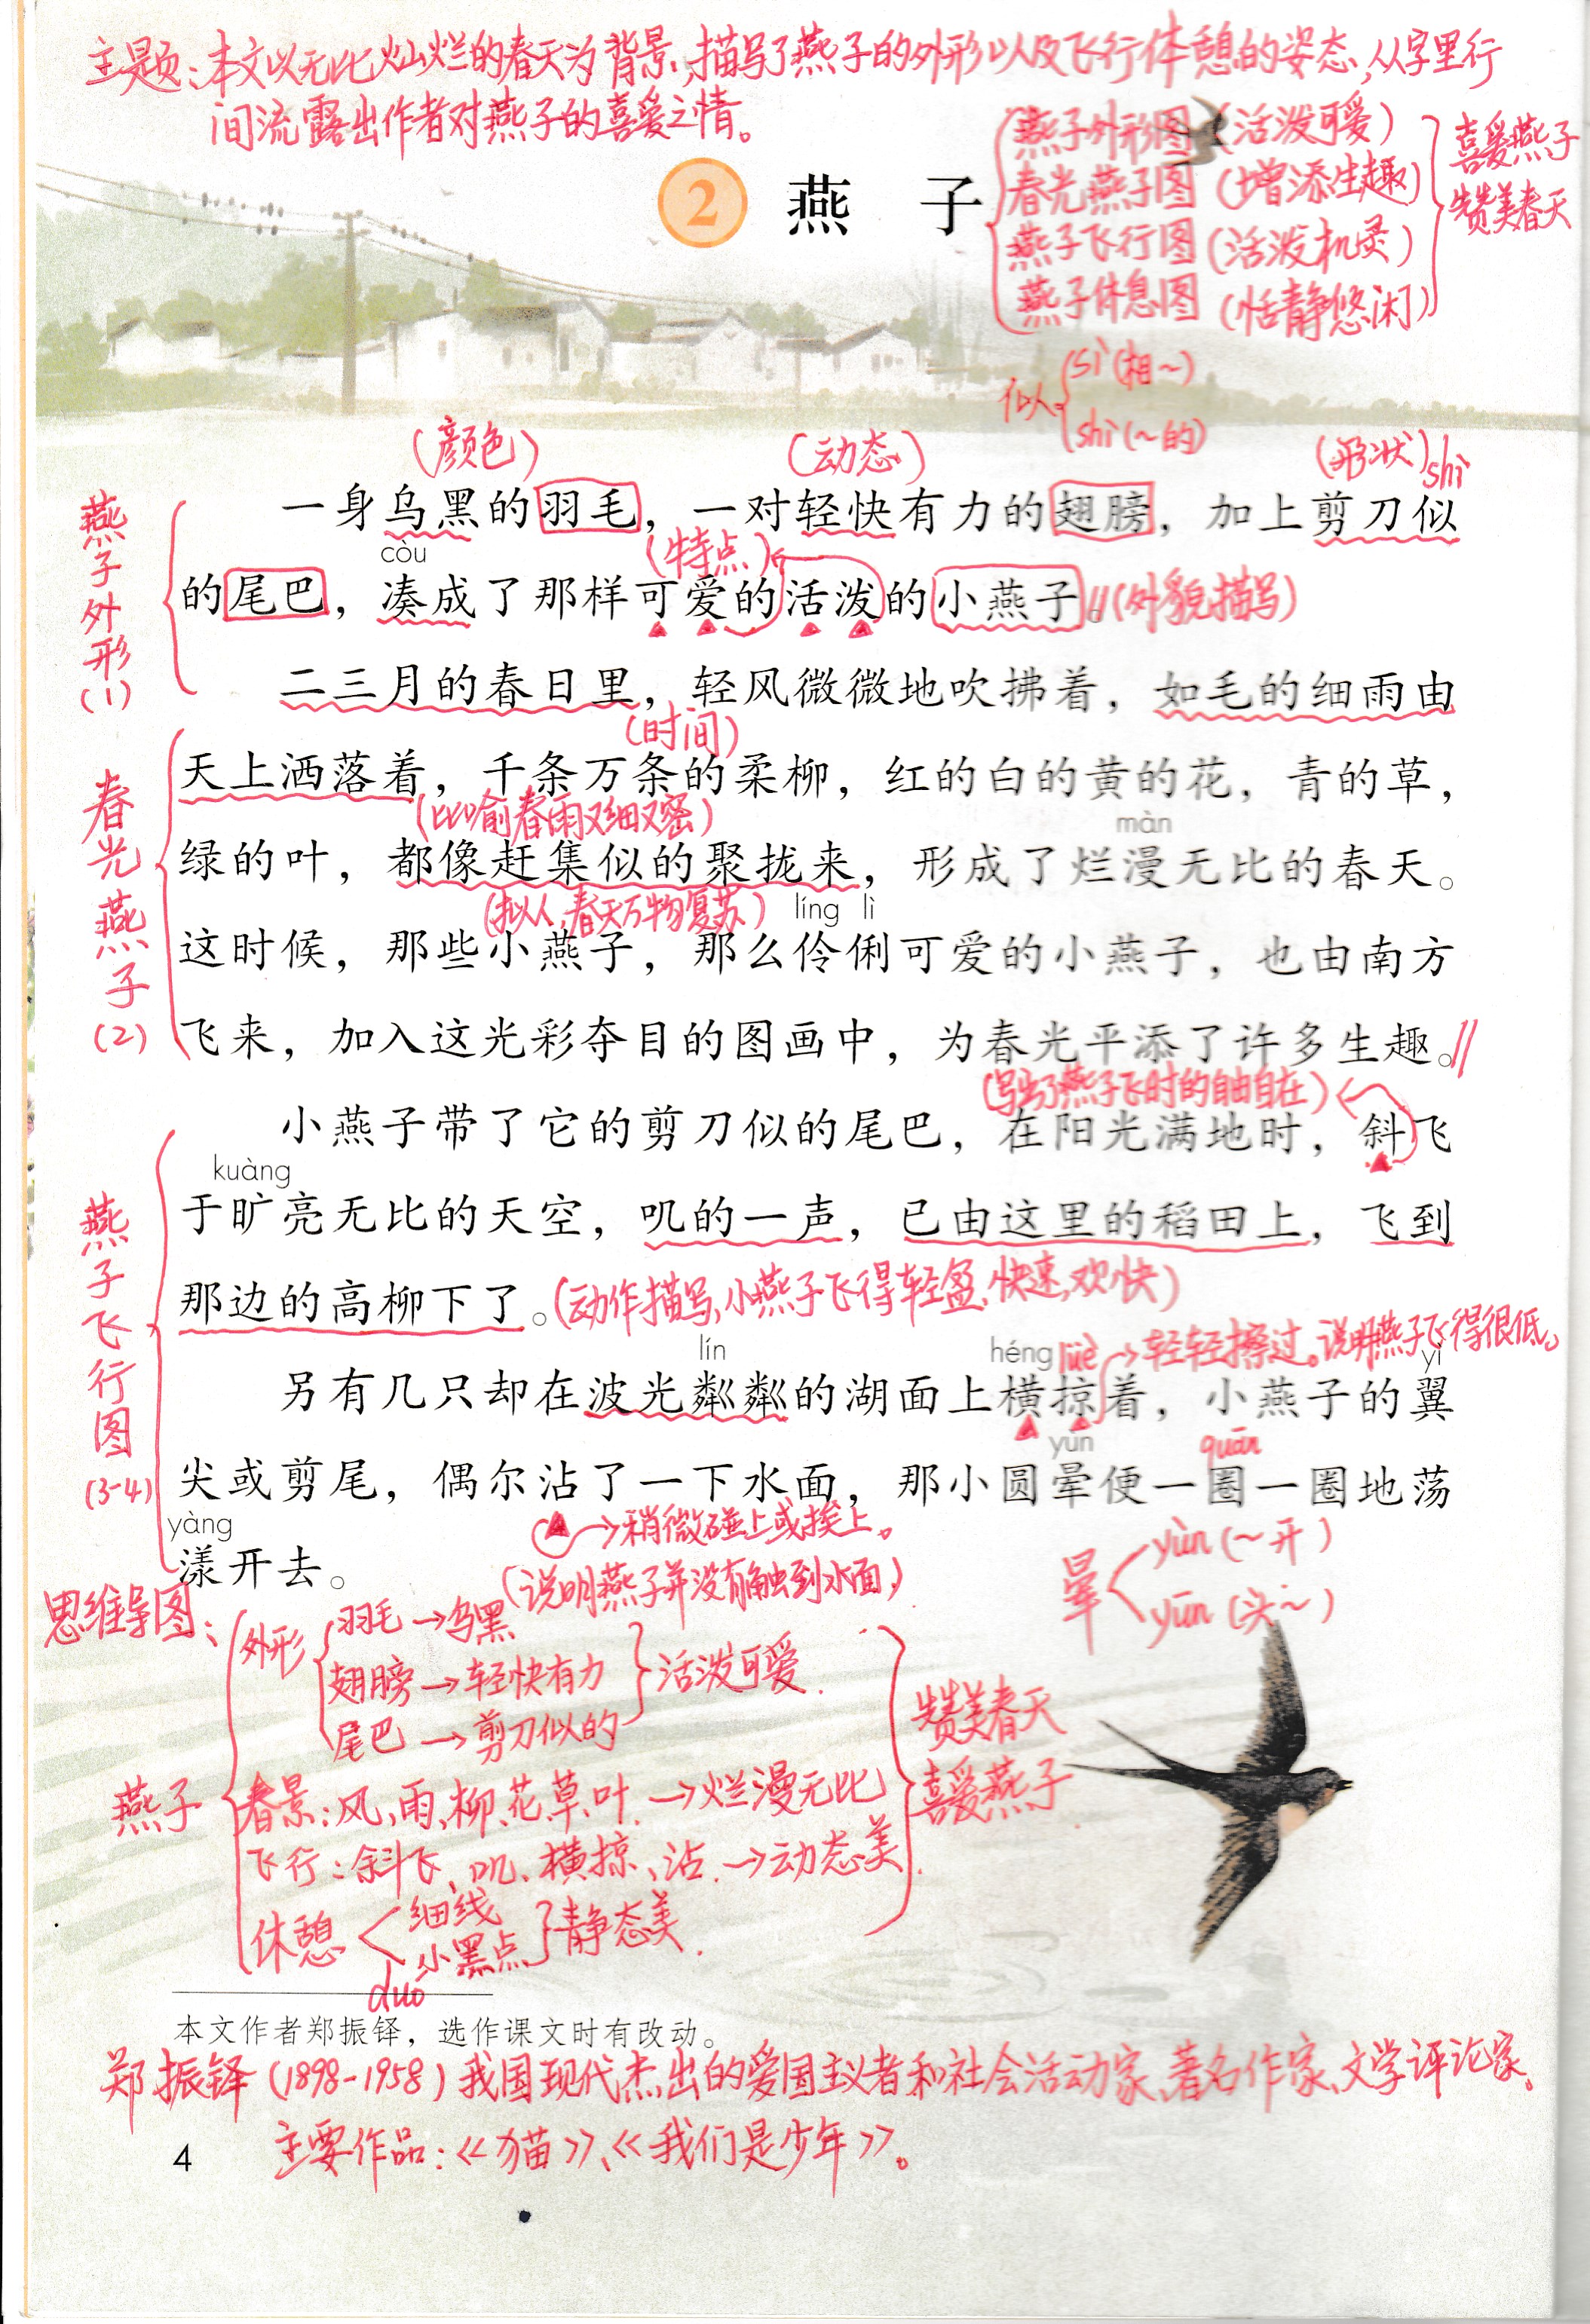 主题:本文以无比灿烂的春天为背景,描写了燕子的外形以及飞行休憩的姿态,从字里行
间流露出作者对燕子的喜爱之情。
2 燕子
燕子外形图(活泼可爱)
春光燕子图(增添生趣)
燕子飞行图(活泼机灵)
燕子休息图(恬静悠闲)
喜爱燕子
赞美春天
似 sì(相~)
shì(~的)
(颜色) (动态) (形状) shì
燕子外形(1)
一身乌黑的羽毛,一对轻快有力的翅膀,加上剪刀似
còu (特点)
的尾巴,凑成了那样可爱的活泼的小燕子。(外貌描写)
二三月的春日里,轻风微微地吹拂着,如毛的细雨由
(时间)
春光燕子(2)
天上洒落着,千条万条的柔柳,红的白的黄的花,青的草,
(比喻春雨又细又密) màn
绿的叶,都像赶集似的聚拢来,形成了烂漫无比的春天。
(拟人,春天万物复苏) líng lì
这时候,那些小燕子,那么伶俐可爱的小燕子,也由南方
飞来,加入这光彩夺目的图画中,为春光平添了许多生趣。
(写出了燕子飞时的自由自在)
小燕子带了它的剪刀似的尾巴,在阳光满地时,斜飞
kuàng
燕子飞行图(3-4)
于旷亮无比的天空,叽的一声,已由这里的稻田上,飞到
那边的高柳下了。(动作描写,小燕子飞得轻盈、快速,欢快)
lín héng lüè →轻轻擦过。说明燕子飞得很低。 yì
另有几只却在波光粼粼的湖面上横掠着,小燕子的翼
yùn quān
尖或剪尾,偶尔沾了一下水面,那小圆晕便一圈一圈地荡
yàng →稍微碰上或挨上。
漾开去。
(说明燕子并没有触到水面)
晕 yùn(~开)
yūn(头~)
思维导图:
燕子
外形
羽毛→乌黑
翅膀→轻快有力
尾巴→剪刀似的
活泼可爱.
春景:风、雨、柳、花、草、叶.→烂漫无比
飞行:斜飞、叽、横掠、沾.→动态美.
休憩 细线
小黑点
静态美.
赞美春天
喜爱燕子
duó
本文作者郑振铎,选作课文时有改动。
郑振铎(1898-1958)我国现代杰出的爱国主义者和社会活动家、著名作家、文学评论家。
主要作品:《猫》、《我们是少年》。
4